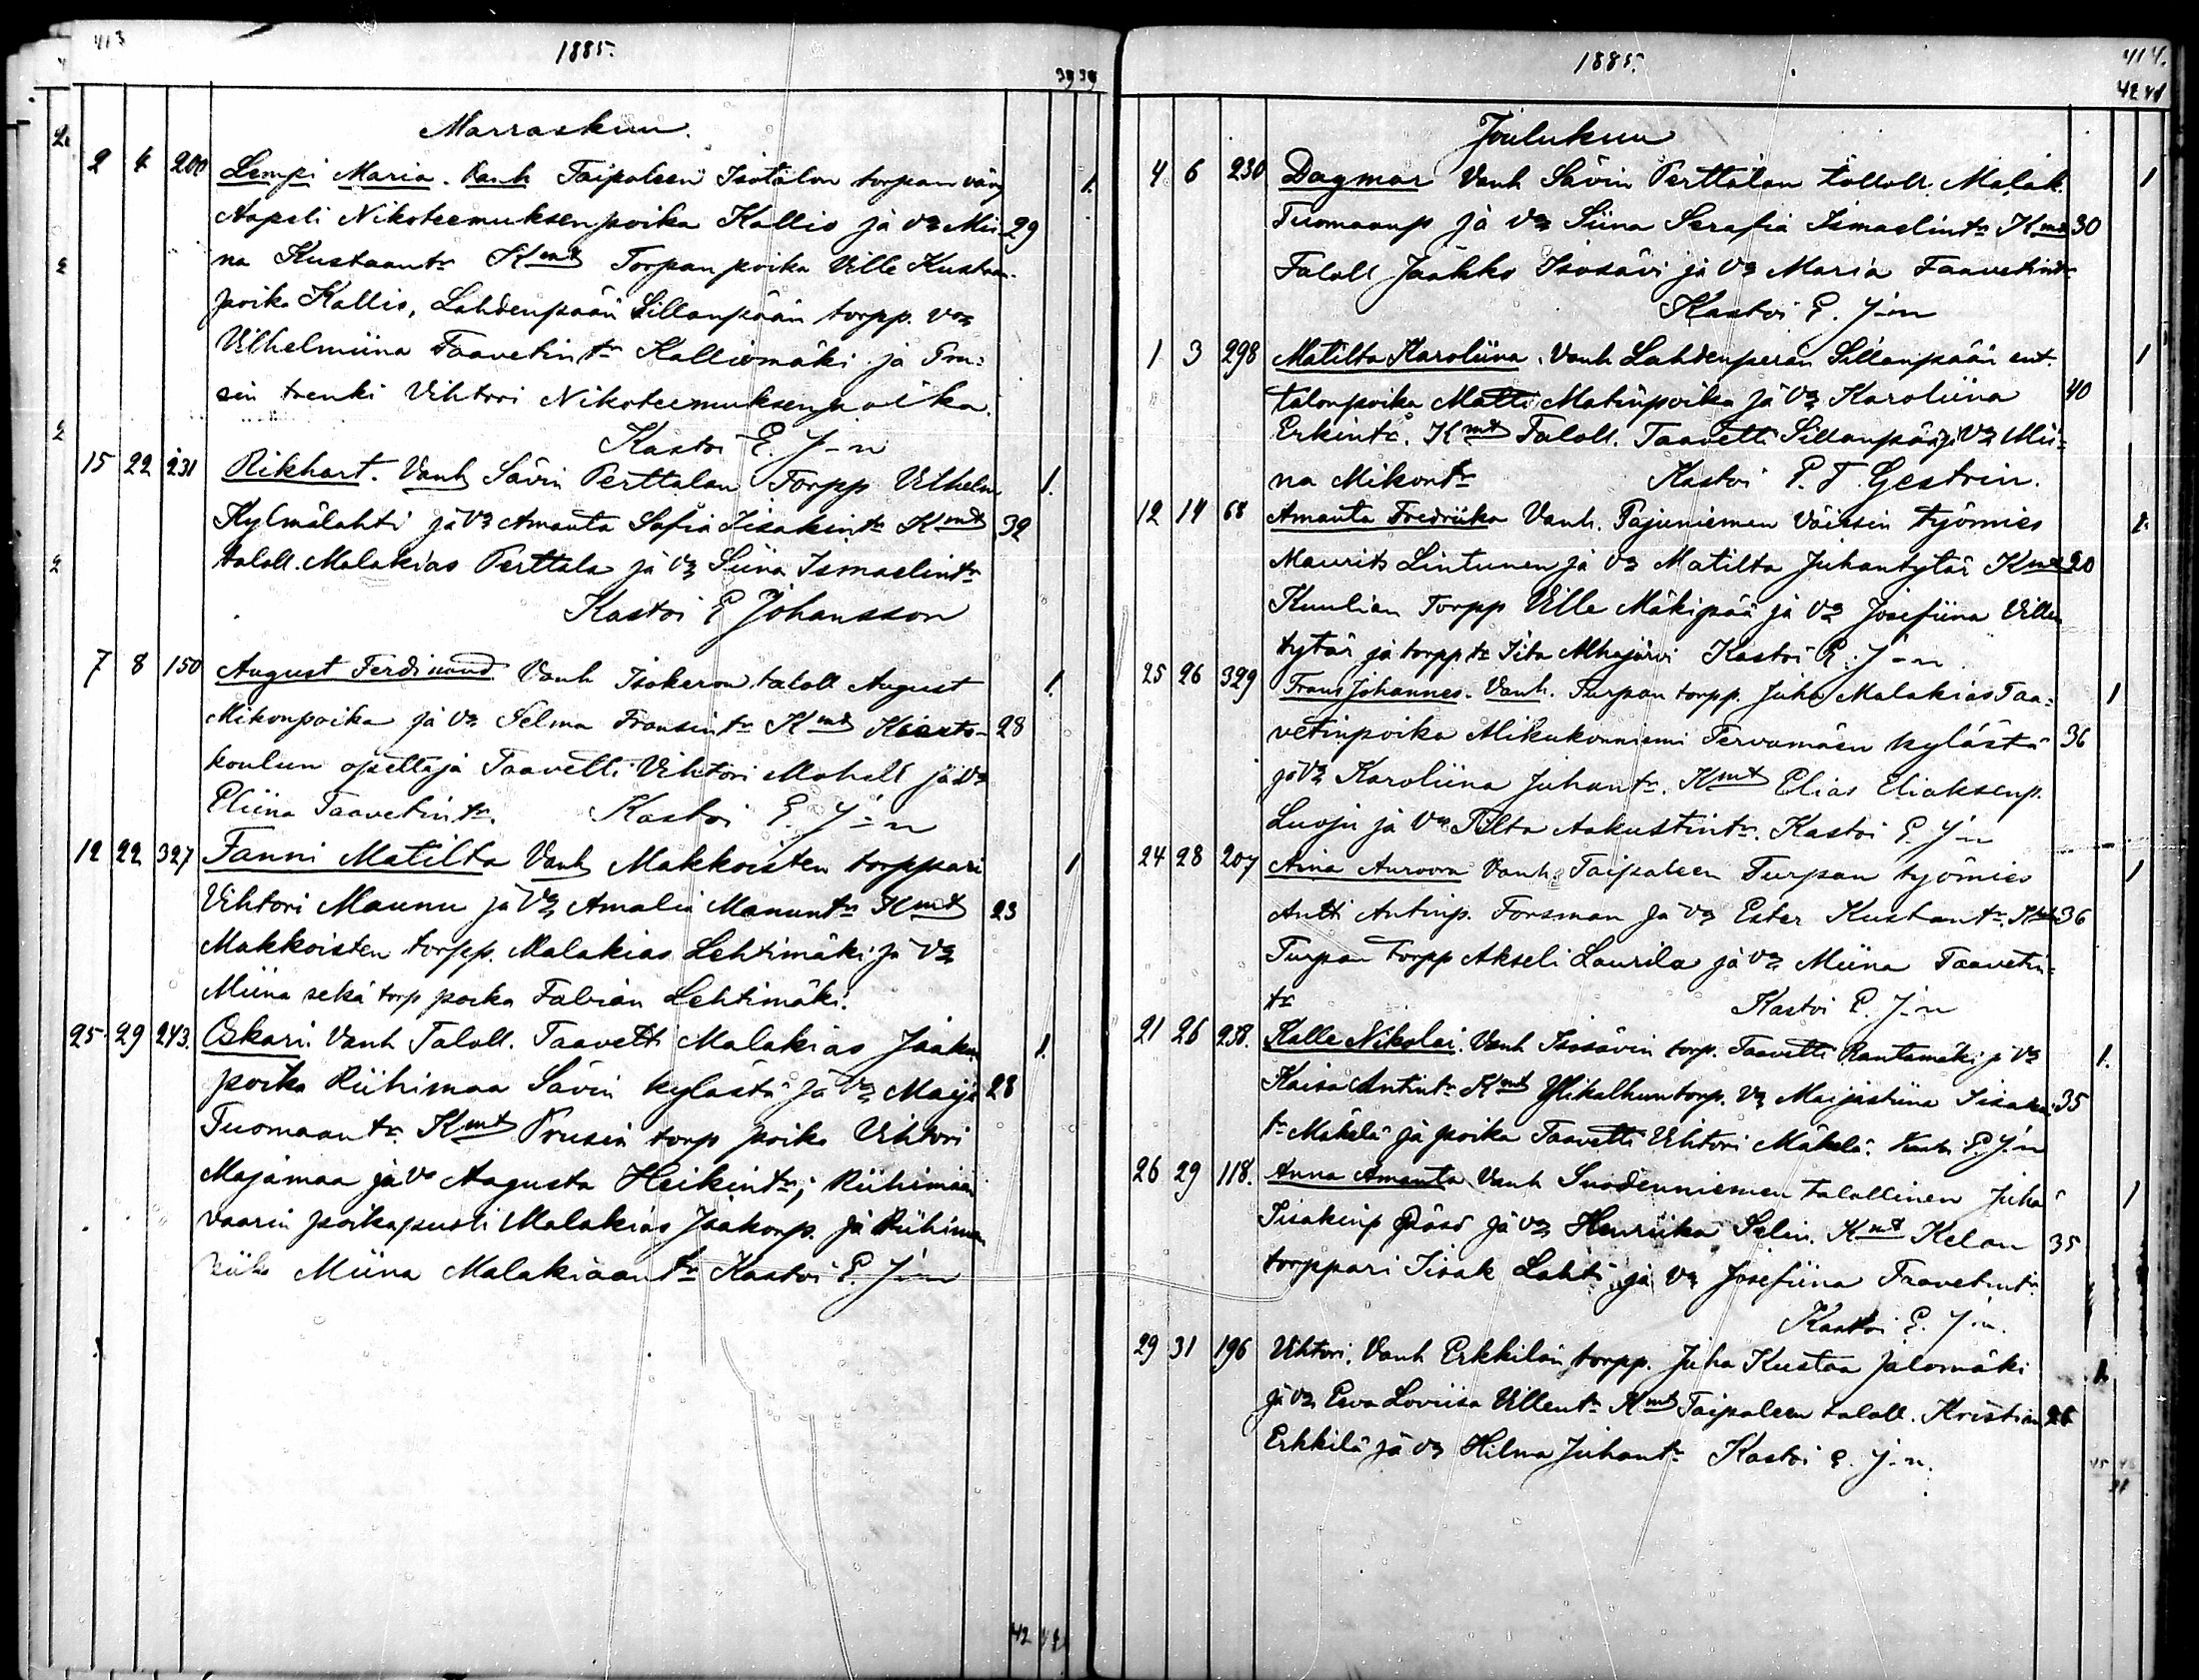 413
1885.
39 39
Marraskuu.
2 4 200 Lempi Maria. Vanh Taipaleen Isotalon torpan väv 1.
Aapeli Nikoteemuksenpoika Kallio ja vo Mii 29
na Kustaantr Kmt Torpan poika Ville Kustaan
poika Kallio, Lahdenpään Sillanpään torpp. vo
Vilhelmiina Taavetintr Kalliomäki ja Pru-
sin trenki Vihtori Nikoteemuksenpoika.
Kastoi E. J-n
15 22 231 Rikhart. Vanh Sävin Perttalan Torpp Vilhelm 1.
Kylmälahti ja vo Amanta Sofia Iisakintr Kmt 32
taloll. Malakias Perttala ja vo Siina Ismaelintr
Kastoi E Johansson
7 8 150 August Ferdinand Vanh Isokeron taloll August 1.
Mikonpoika ja vo Selma Fransintr Kmt Kierto- 28
koulun opettaja Taavetti Vihtori Mohell ja vo
Eliina Taavetintr. Kastoi E. J-n
12 22 327 Fanni Matilta Vanh Makkoisten torppari 1
Vihtori Maunu ja vo Amalia Manuntr Kmt 23
Makkoisten torpp. Malakias Lehtimäki ja vo
Miina sekä torp poika Fabian Lehtimäki.
25 29 243. Oskari. Vanh Taloll. Taavetti Malakias Jaakon 1.
poika Riihimaa Sävin kylästä ja vo Maija 28
Tuomaantr. Kmt Prusin torp poika Vihtori
Majamaa ja vo Augusta Heikintr; Riihimaan
vaarin poikapuoli Malakias Jaakonp. ja Riihimaan
Miina Malakiaantr Kastoi E. J-n
42
1885.
414.
42 41
Joulukuu
4 6 230 Dagmar Vanh Sävin Perttalan taloll. Malak. 1
Tuomaanp ja vo Siina Serafia Ismaelintr Kmt 30
Taloll Jaakko Isosävi ja vo Maria Taavetintr
Kastoi E. J-n
1 3 298 Matilta Karoliina. Vanh Lahdenperän Sillanpään ent. 1
talonpoika Matti Matinpoika ja vo Karoliina 40
Erkintr. Kmt Taloll. Taavetti Sillanpää ja vo Mii-
na Mikontr Kastoi P. T. Gestrin.
12 14 68 Amanta Fredriika Vanh. Pajuniemen Väissin työmies 1.
Maurits Lintunen ja vo Matilta Juhantytär Kmt 20
Kuulian Torpp Ville Mäkipää ja vo Josefiina Ville
tytär ja torpp tr Iita Alhajärvi Kastoi E. J-n
25 26 329 Frans Johannes. Vanh. Turpan torpp. Juho Malakias Taa- 1
vetinpoika Mikukonniemi Tervamäen kylästä 36
ja vo Karoliina Juhantr. Kmt Elias Eliaksenp.
Luoju ja vo Tilta Aakustintr. Kastoi E. J-n
24 28 207 Aina Auroora Vanh. Taipaleen Turpan työmies 1
Antti Antinp. Forsman ja vo Ester Kustantr. Kmt 36
Turpan Torpp Akseli Laurila ja vo Miina Taavetin-
tr Kastoi E. J-n
21 26 238. Kalle Nikolai. Vanh Isosävin torp. Taavetti Rantamäki ja vo 1.
Kaisa Antintr Kmt torp. vo Maijastiina Iisakin 35
tr Mäkelä ja poika Taavetti Vihtori Mäkelä. Kast. E. J-n
26 29 118. Anna Amanta Vanh Suodenniemen talollinen Juha 1
Iisakinp ja vo Henriika Selin. Kmt Kelan 35
torppari Iisak Lahti ja vo Josefiina Taavetintr.
Kastoi E. J-n.
29 31 196 Vihtori. Vanh Erkkilän torpp. Juha Kustaa Jalomäki 1.
ja vo Eeva Loviisa Villentr Kmt Taipaleen taloll. Kristian 26
Erkkilä ja vo Hilma Juhantr Kastoi E. J-n.